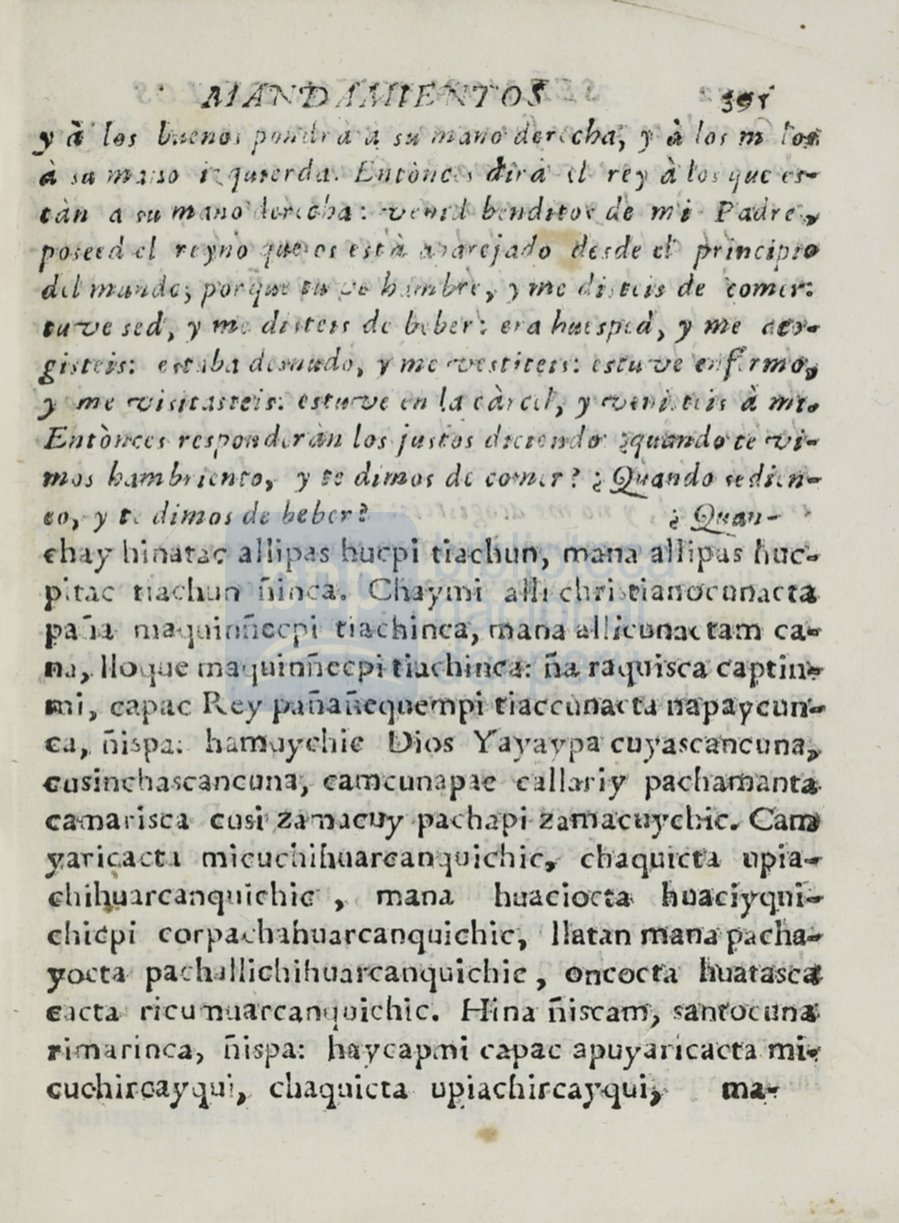 MANDAMIENTOS 391
y à los buenos pondrà à su mano derecha, y à los malos
à su mano izquierda. Entònces dirà el rey à los que es-
tàn a su mano derecha: venid benditos de mi Padre,
poseed el reyno que os està aparejado desde el principio
del mundo; porque tuve hambre, y me disteis de comer:
tuve sed, y me disteis de beber: era huesped, y me aco-
gisteis: estaba desnudo, y me vestiteis: estuve enfermo,
y me visitasteis: estuve en la càrcel, y venisteis à mi.
Entònces responderàn los justos diciendo ¿quando te vi-
mos hambriento, y te dimos de comer? ¿Quando sedien-
to, y te dimos de beber? ¿Quan-
chay hinatac allipas hucpi tiachun, mana allipas huc-
pitac tiachun ñinca. Chaymi alli christianocunacta
paña maquinñecpi tiachinca, mana allicunactam ca-
na, lloque maquinñecpi tiachinca: ña raquisca captin-
mi, capac Rey pañañequempi tiaccunacta napaycun-
ca, ñispa: hamuychic Dios Yayaypa cuyascancuna,
cusinchascancuna, camcunapac callariy pachamanta
camarisca cusi zamacuy pachapi zamacuychic. Cam
yaricacta micuchihuarcanquichic, chaquicta upia-
chihuarcanquichic, mana huaciocta huaciyqui-
chicpi corpachahuarcanquichic, llatan mana pacha-
yocta pachallichihuarcanquichic, oncocta huatasca
cacta ricumuarcanquichic. Hina ñiscam, santocuna
rimarinca, ñispa: haycapmi capac apuyaricacta mi-
cuchircayqui, chaquicta upiachircayqui, ma-